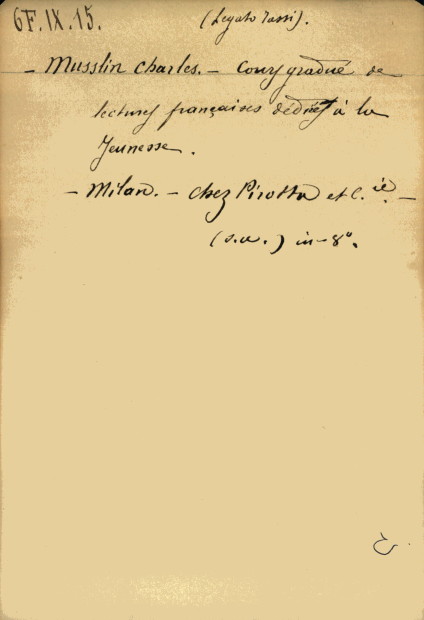 6F.IX.15. (Legato Tassi).
- Musslin Charles. - Cours gradué de
lectures françaises dédiées à la
Jeunesse.
- Milan. - chez Pirotta et C.ie -
(s.a.) in-8°.